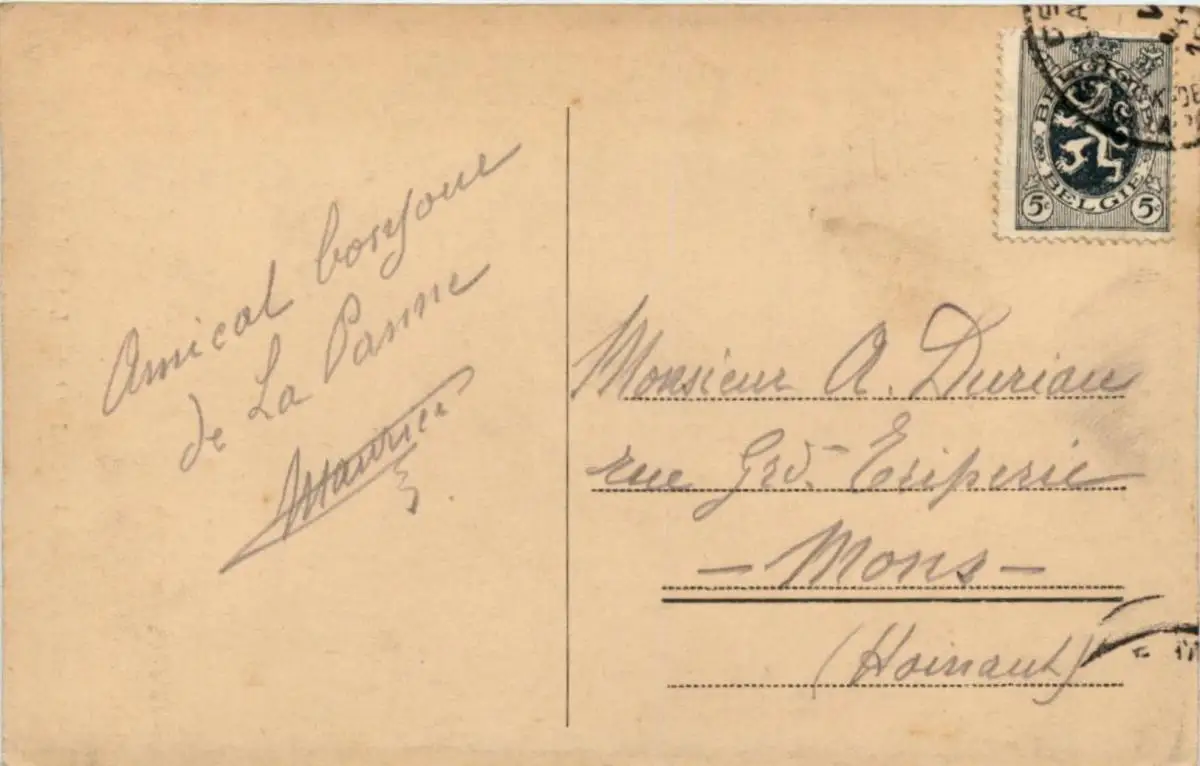 Amical bonjour
de La Panne
Maurice
BELGIQUE
BELGIE
5c 5c
Monsieur A. Duriau
rue Grd. Triperie
- Mons -
(Hainaut)